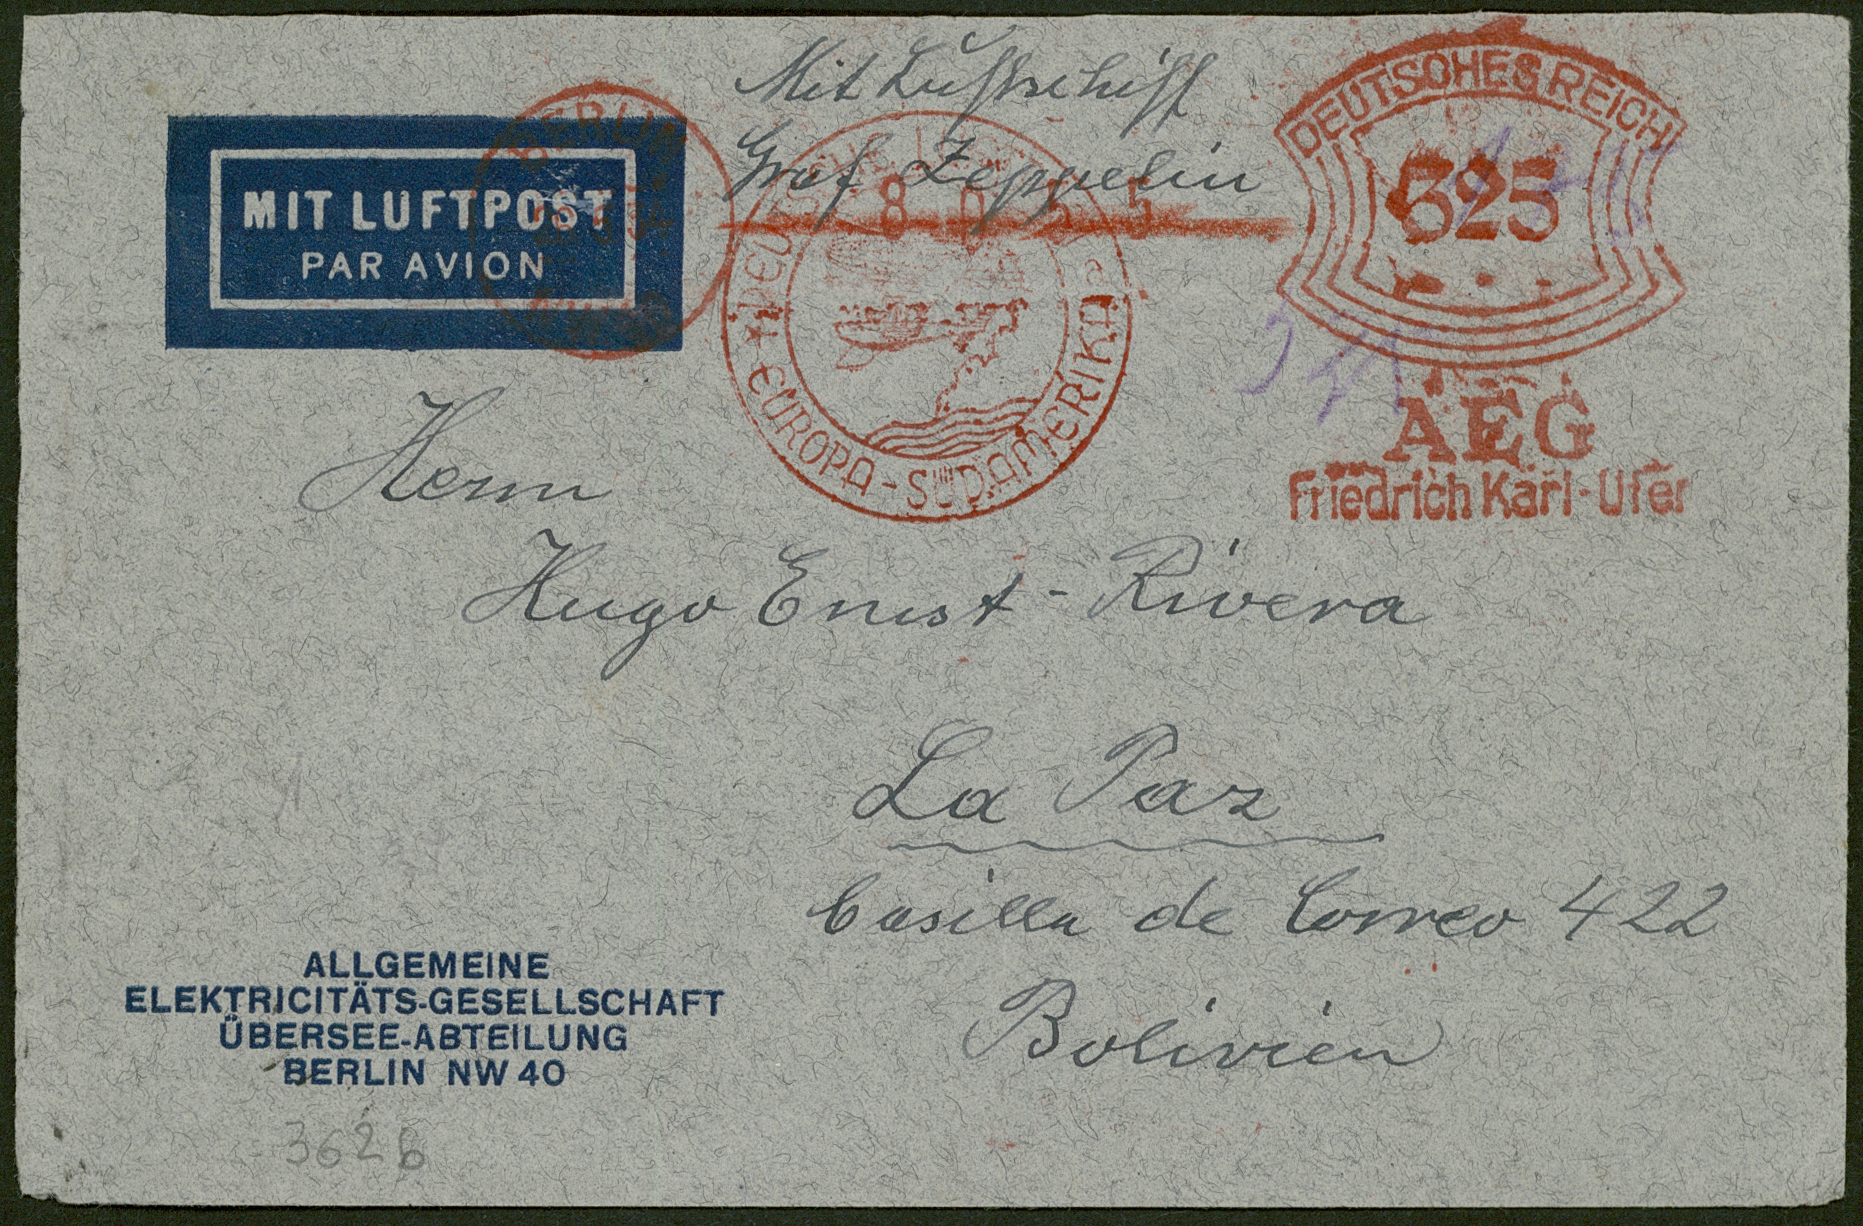 Mit Luftschiff
Graf Zeppelin
MIT LUFTPOST
PAR AVION
BERLIN
DEUTSCHE
EUROPA-SÜDAMERIKA
DEUTSCHES REICH
325
AEG
Friedrich Karl-Ufer
Herrn
Hugo Ernst-Rivera
La Paz
Casilla de Correo 422
Bolivien
ALLGEMEINE
ELEKTRICITÄTS-GESELLSCHAFT
ÜBERSEE-ABTEILUNG
BERLIN NW 40
3626